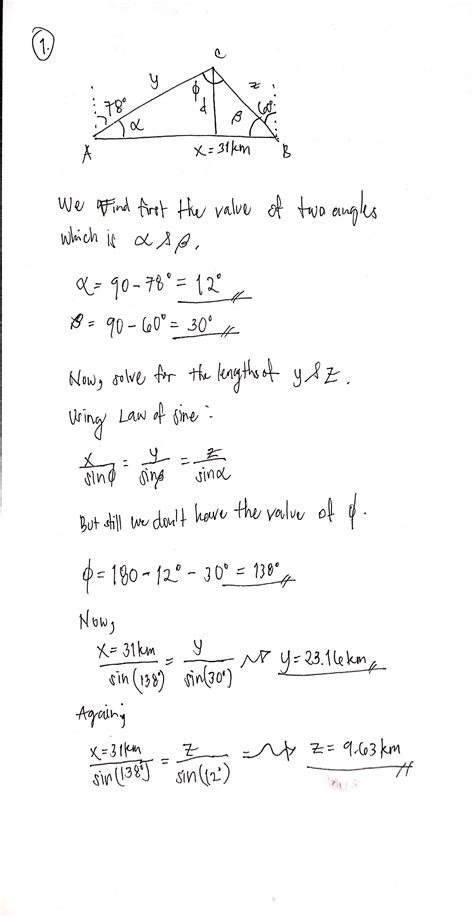 1.
C
y
z
ϕ
d
78°
60°
α
β
A
x = 31km
B
We find first the value of two angles
which is α & β.
α = 90 - 78° = 12°
β = 90 - 60° = 30°
Now, solve for the lengths of y & z.
Using Law of sine:
x/sinϕ = y/sinβ = z/sinα
But still we don't have the value of ϕ.
ϕ = 180 - 12° - 30° = 138°
Now,
x = 31km/sin(138°) = y/sin(30°) ⇝ y = 23.16km
Again,
x = 31km/sin(138°) = z/sin(12°) ⇝ z = 9.63km